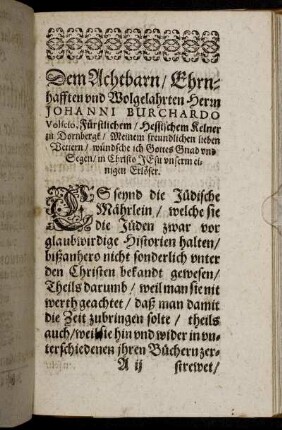 Dem Achtbarn / Ehrn-
hafften vnd Wolgelahrten Herrn
JOHANNI BURCHARDO
Fürstlichem / Hessischem Kelner
zu Dornbergk / Meinem freundlichen lieben
Vettern / wündsche ich Gottes Gnad vnd
Segen / in Christo JEsu vnserm ei-
nigen Erlöser.
ES seynd die Jüdische
Mährlein / welche sie
die Jüden zwar vor
glaubwirdige Historien halten /
bißanhero nicht sonderlich vnter
den Christen bekandt gewesen /
Theils darumb / weil man sie nit
werth geachtet / daß man damit
die Zeit zubringen solte / theils
auch / weil sie hin vnd wider in vn-
terschiedenen jhren Büchern zer-
A ij strewet /